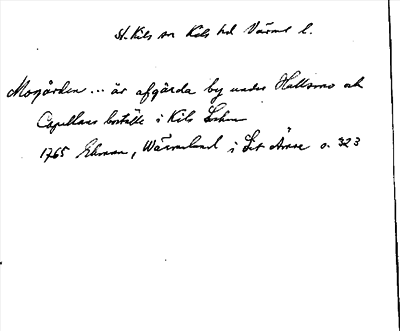 St. Kils sn Kils hd Värml l.
Mogården ... är afgärda by under Hallsmo och
Capellans boställe i Kils Sokn
1765 Ekman, Wärmland i Sit Ämne s. 323